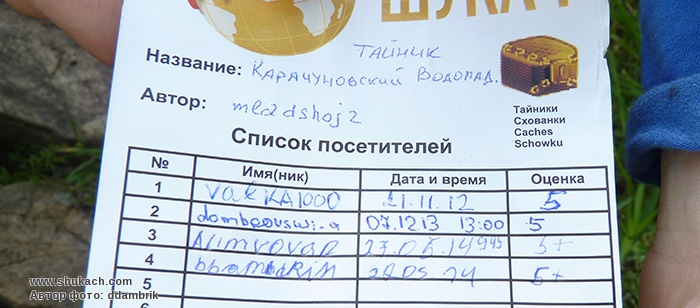 ШУКАЧ
ТАЙНИК
Название: КАРАЧУНОВСКИЙ ВОДОПАД.
Автор: mladshoj2
Тайники
Схованки
Caches
Schowku
Список посетителей
№ Имя(ник) Дата и время Оценка
1 VakKA1000 21.11.12 5
2 07.12.13 13:00 5
3 5+
4 5+
5
www.shukach.com
Автор фото: ddambrik